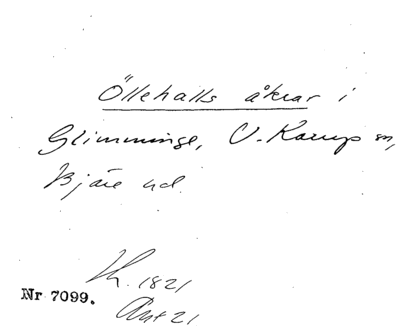 Öllehalls åkrar i
Glimminge, V. Karup sn,
Bjäre hd.
1821
Nr 7099.
21